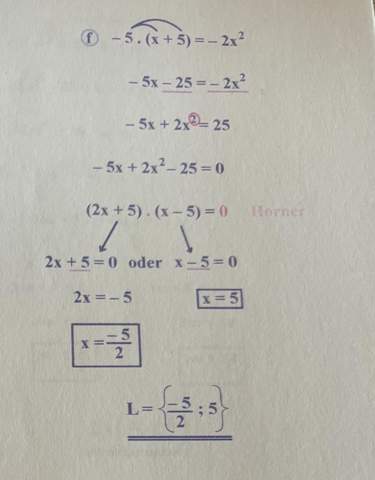 f −5 . (x + 5) = − 2x²
− 5x − 25 = − 2x²
− 5x + 2x² = 25
− 5x + 2x² − 25 = 0
(2x + 5) . (x − 5) = 0 Horner
2x + 5 = 0 oder x − 5 = 0
2x = − 5 x = 5
x = −5/2
L = {−5/2 ; 5}